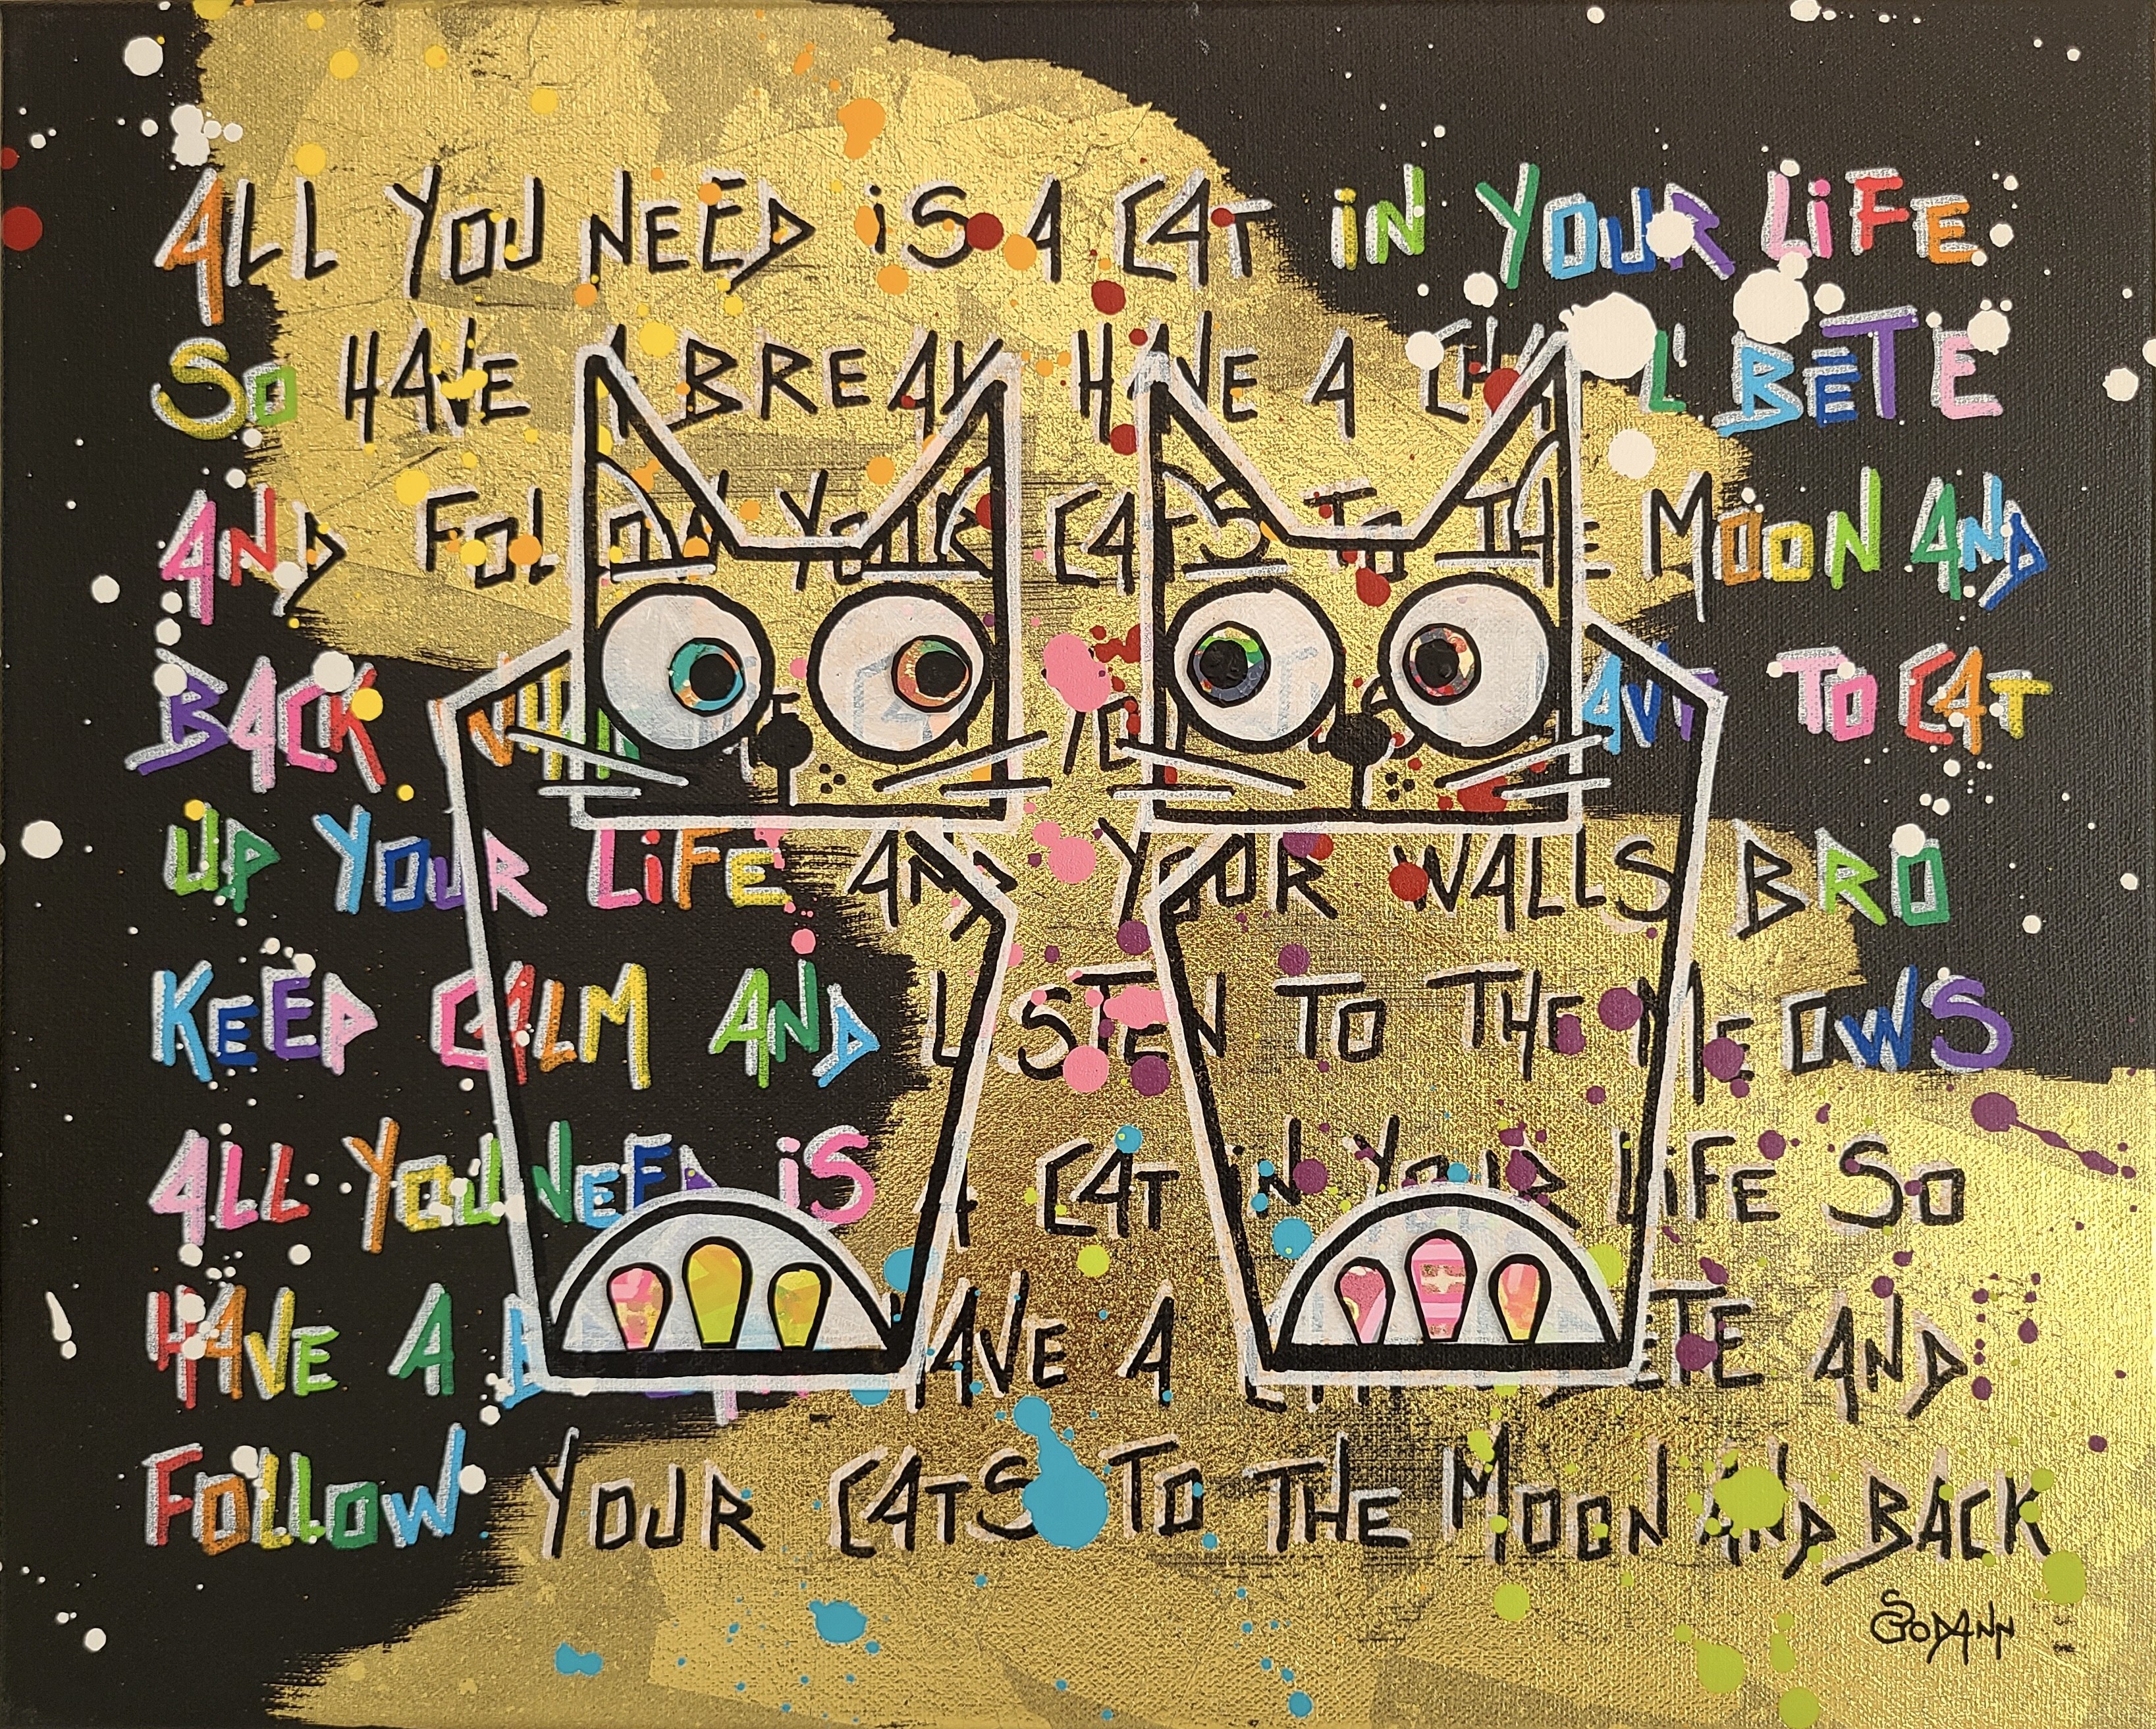 ALL YOU NEED iS A CAT iN YOUR LiFE
SO HAVE A BREAK HAVE A L' BÊTE
AND FOLLOW YOUR CATS TO THE MOON AND
BACK TO CAT
UP YOUR LiFE AND YOUR WALLS BRO
KEEP CALM AND LISTEN TO THE MEOWS
ALL YOU NEED iS A CAT iN YOUR LiFE SO
HAVE A HAVE A AND
FOLLOW YOUR CATS TO THE MOON AND BACK
SODANN